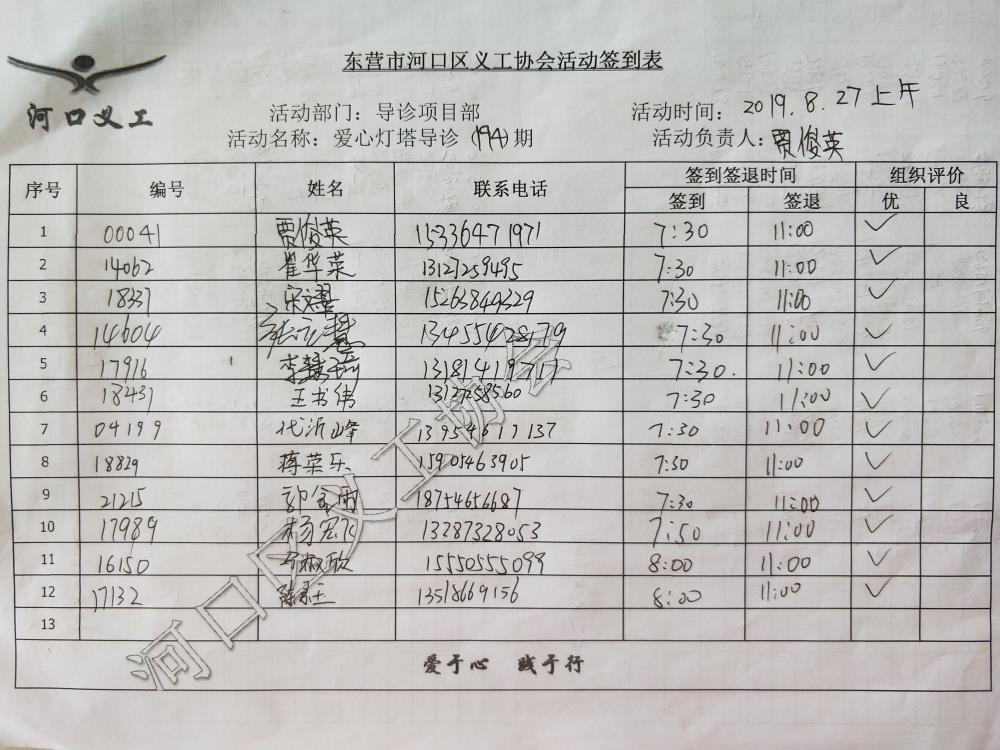 东营市河口区义工协会活动签到表
河口义工
活动部门：导诊项目部
活动时间：2019.8.27上午
活动名称：爱心灯塔导诊（194）期
活动负责人：贾俊英
序号 编号 姓名 联系电话 签到签退时间 组织评价
签到 签退 优 良
1 00041 贾俊英 15336471971 7:30 11:00 ✓
2 14062 崔华菜 13127259495 7:30 11:00 ✓
3 18337 15263849329 7:30 11:00 ✓
4 14604 13455428179 7:30 11:00 ✓
5 17916 13181419717 7:30. 11:00 ✓
6 18431 王书伟 13127258560 7:30 11:00 ✓
7 04199 代沂峰 13954617137 7:30 11:00 ✓
8 18829 蒋荣乐 15905463905 7:30 11:00 ✓
9 21215 18754656687 7:30 11:00 ✓
10 17989 13287328053 7:50 11:00 ✓
11 16150 15550555099 8:00 11:00 ✓
12 17132 13518669156 8:00 11:00 ✓
13
河口区义工协会
爱于心 践于行